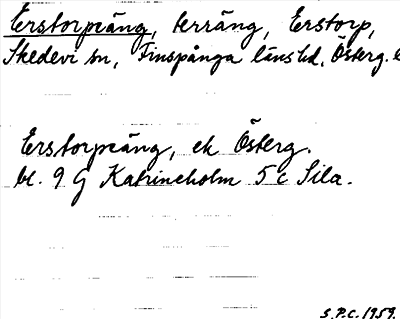 Erstorpeäng, terräng, Erstorp,
Skedevi sn, Finspånga länshd, Österg. l
Erstorpeäng, ek Österg.
bl. 9 G Katrineholm 5 c Sila.
S.P.C. 1959.